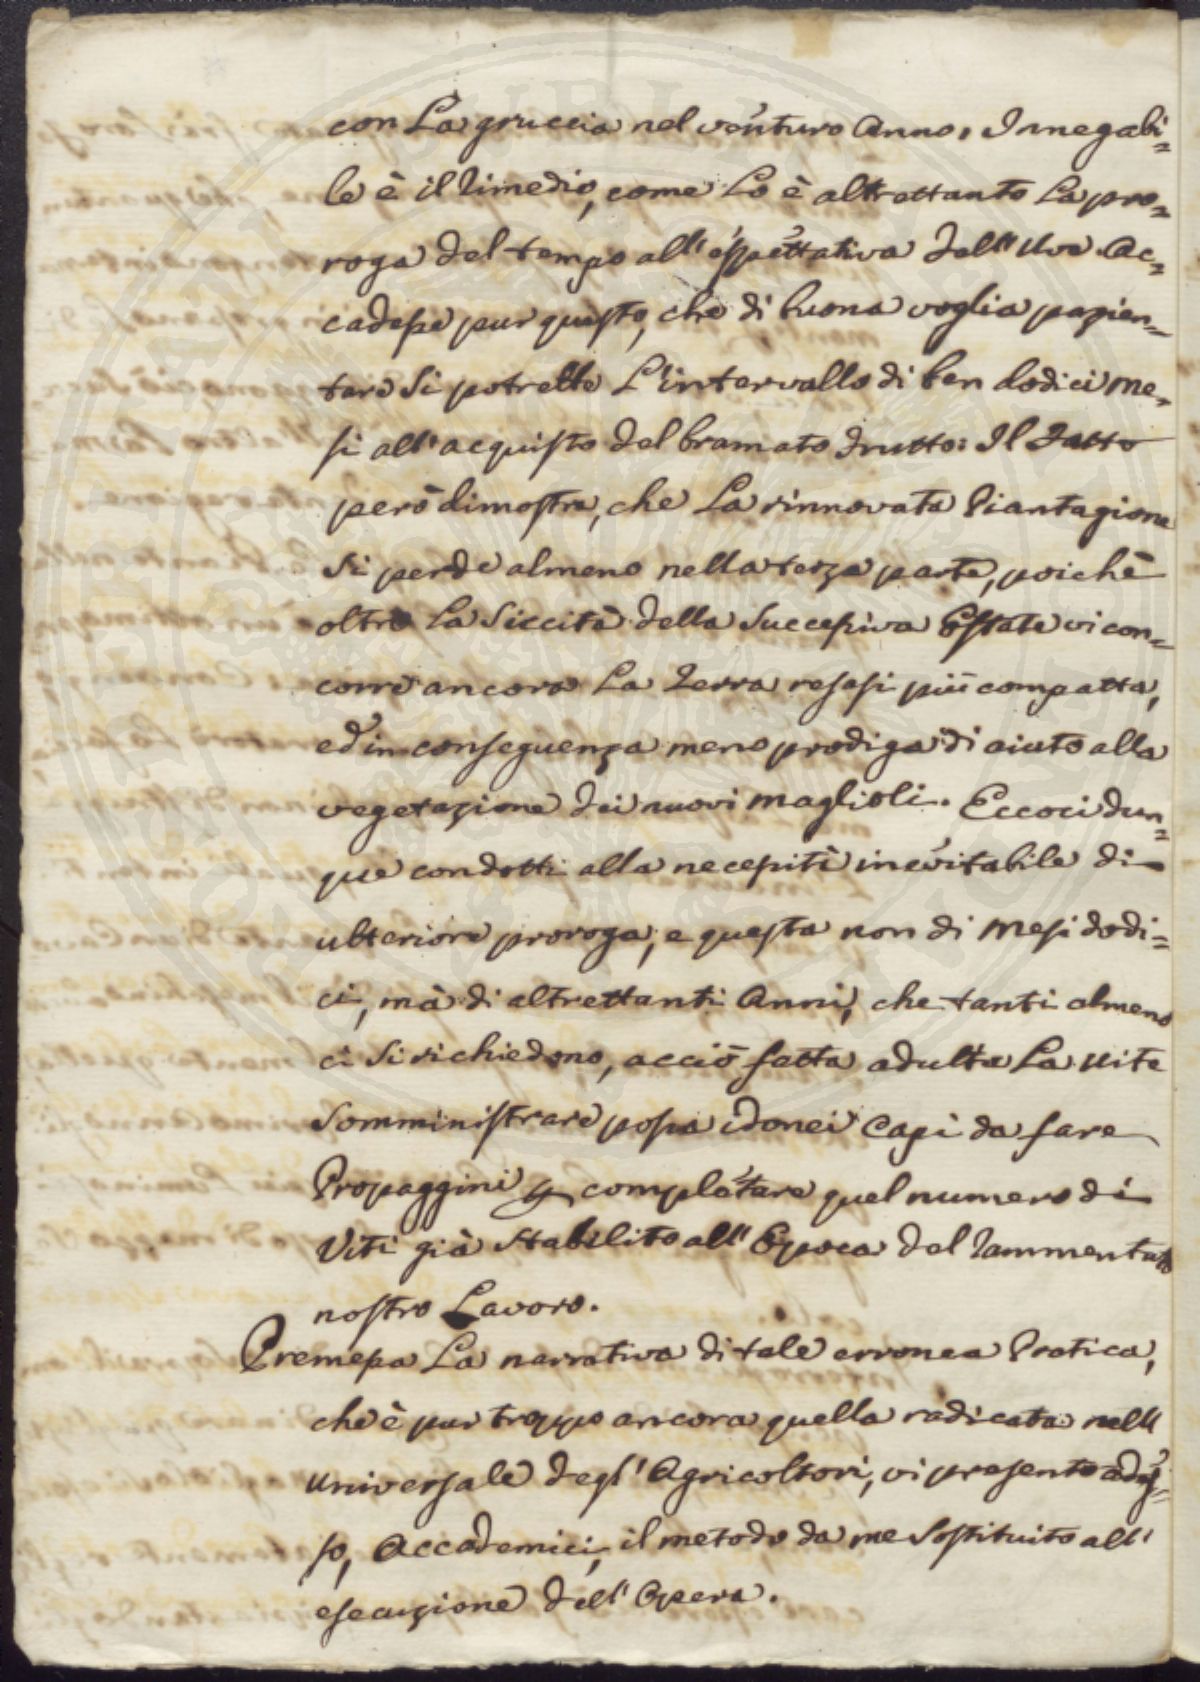 con La gruccia nel venturo Anno. Innegabi=
le è il Rimedio, come Lo è altrettanto La pro=
roga del tempo all'espettativa dell'Uve. Ac=
cadesse pur questo, che di buona voglia pazien=
tare si potrebbe L'intervallo di ben dodici me=
si all'acquisto del bramato frutto: Il Fatto
però dimostra, che La rinnovata Piantagione
si perde almeno nella terza parte, poichè
oltre La Siccità della Successiva Estate vi con=
corre ancora La Terra resasi più compatta,
ed in conseguenza meno prodiga di aiuto alla
vegetazione dei nuovi maglioli. Eccoci dun=
que condotti alla necessità inevitabile di
ulteriore proroga, e questa non di mesi dodi=
ci, mà di altrettanti Anni, che tanti almeno
ci si richiedono, acciò fatta adulta La vite
Somministrare possa idonei Capi da fare
Propaggini per completare quel numero di
Viti già Stabilito all'Epoca del Rammentato
nostro Lavoro.
Premessa La narrativa di tale erronea Pratica,
che è pur troppo ancora quella radicata nell'
universale degl'Agricoltori, vi presento ades=
so, Accademici, il metodo da me Sostituito all'
esecuzione dell'Opera.